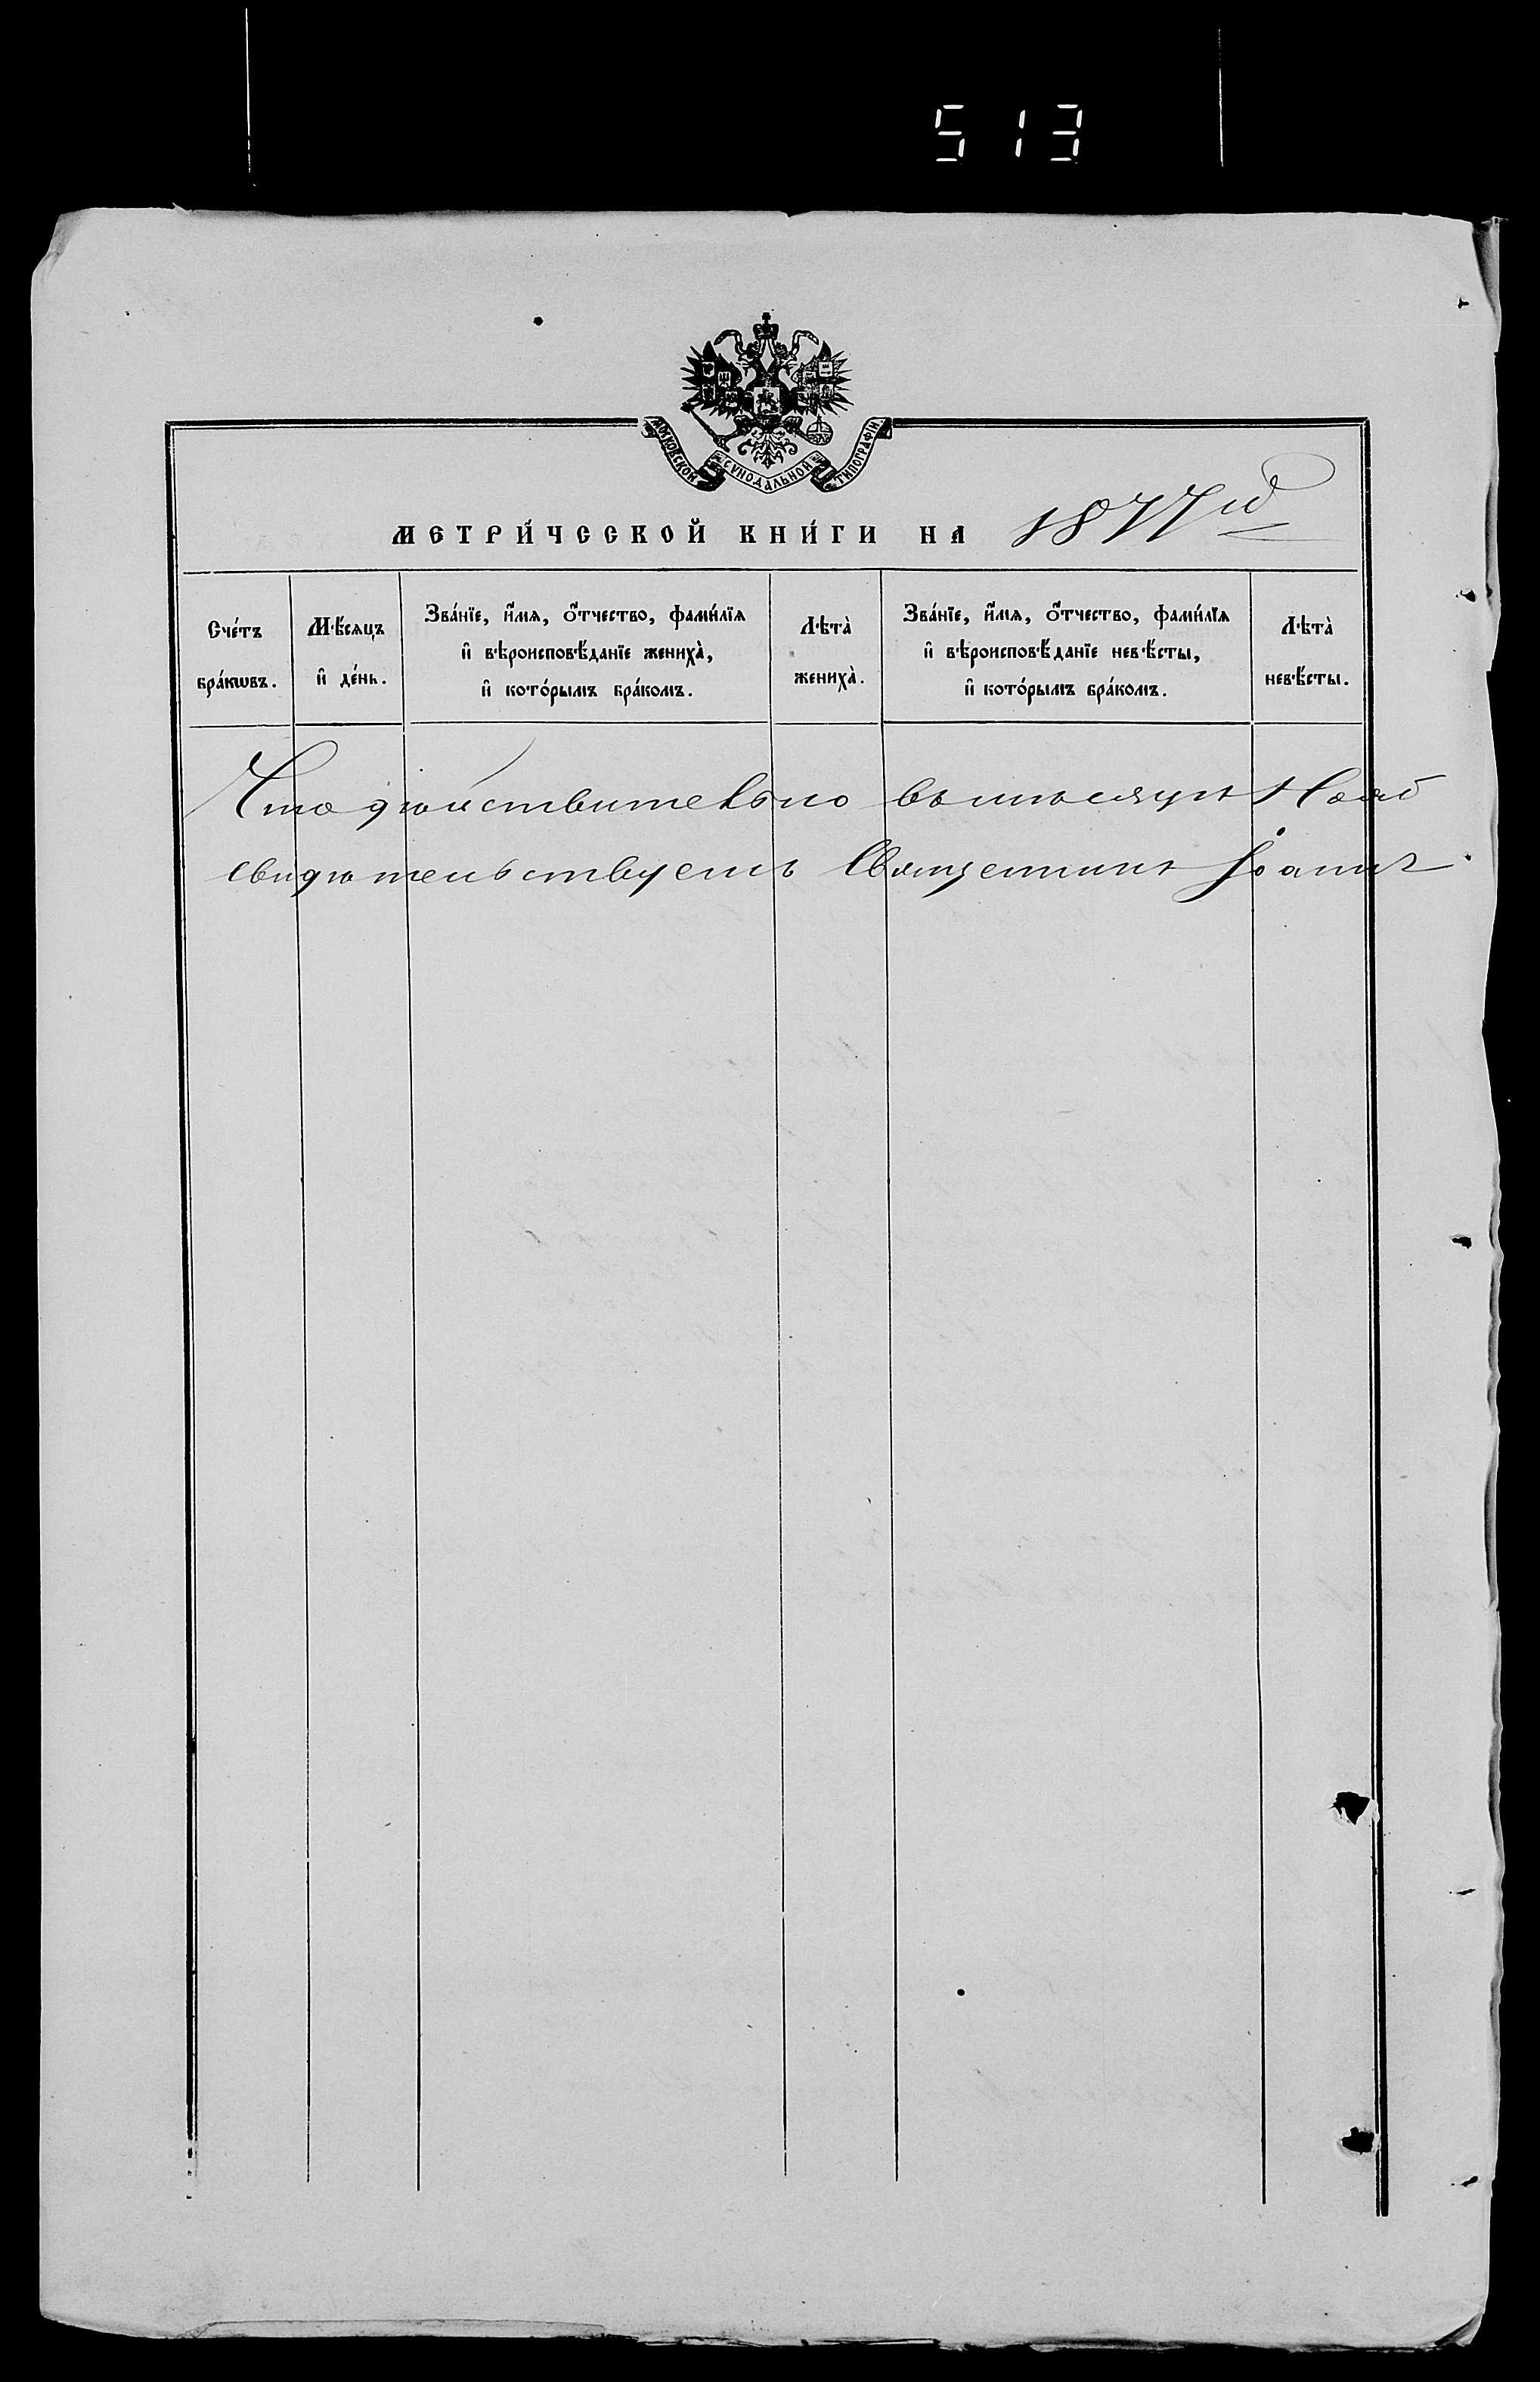 513
МОСКОВСКОЙ СУНОДАЛЬНОЙ ТИПОГРАФІИ
МЕТРИ́ЧЕСКОЙ КНИ́ГИ НА 1877й
Сче́тъ бра́кѡвъ.
Мѣ́сяцъ и҆ де́нь.
Зва́нїе, и҆́мѧ, ѻ҆́тчество, фами́лїѧ
и҆ вѣроисповѣ́данїе жениха̀,
и҆ кото́рымъ бра́комъ.
Лѣта̀ жениха̀.
Зва́нїе, и҆́мѧ, ѻ҆́тчество, фами́лїѧ
и҆ вѣроисповѣ́данїе невѣ́сты,
и҆ кото́рымъ бра́комъ.
Лѣта̀ невѣ́сты.
Что дѣйствительно въ мѣсяцѣ Нояб
свидѣтельствуемъ Священникъ Іоаннъ